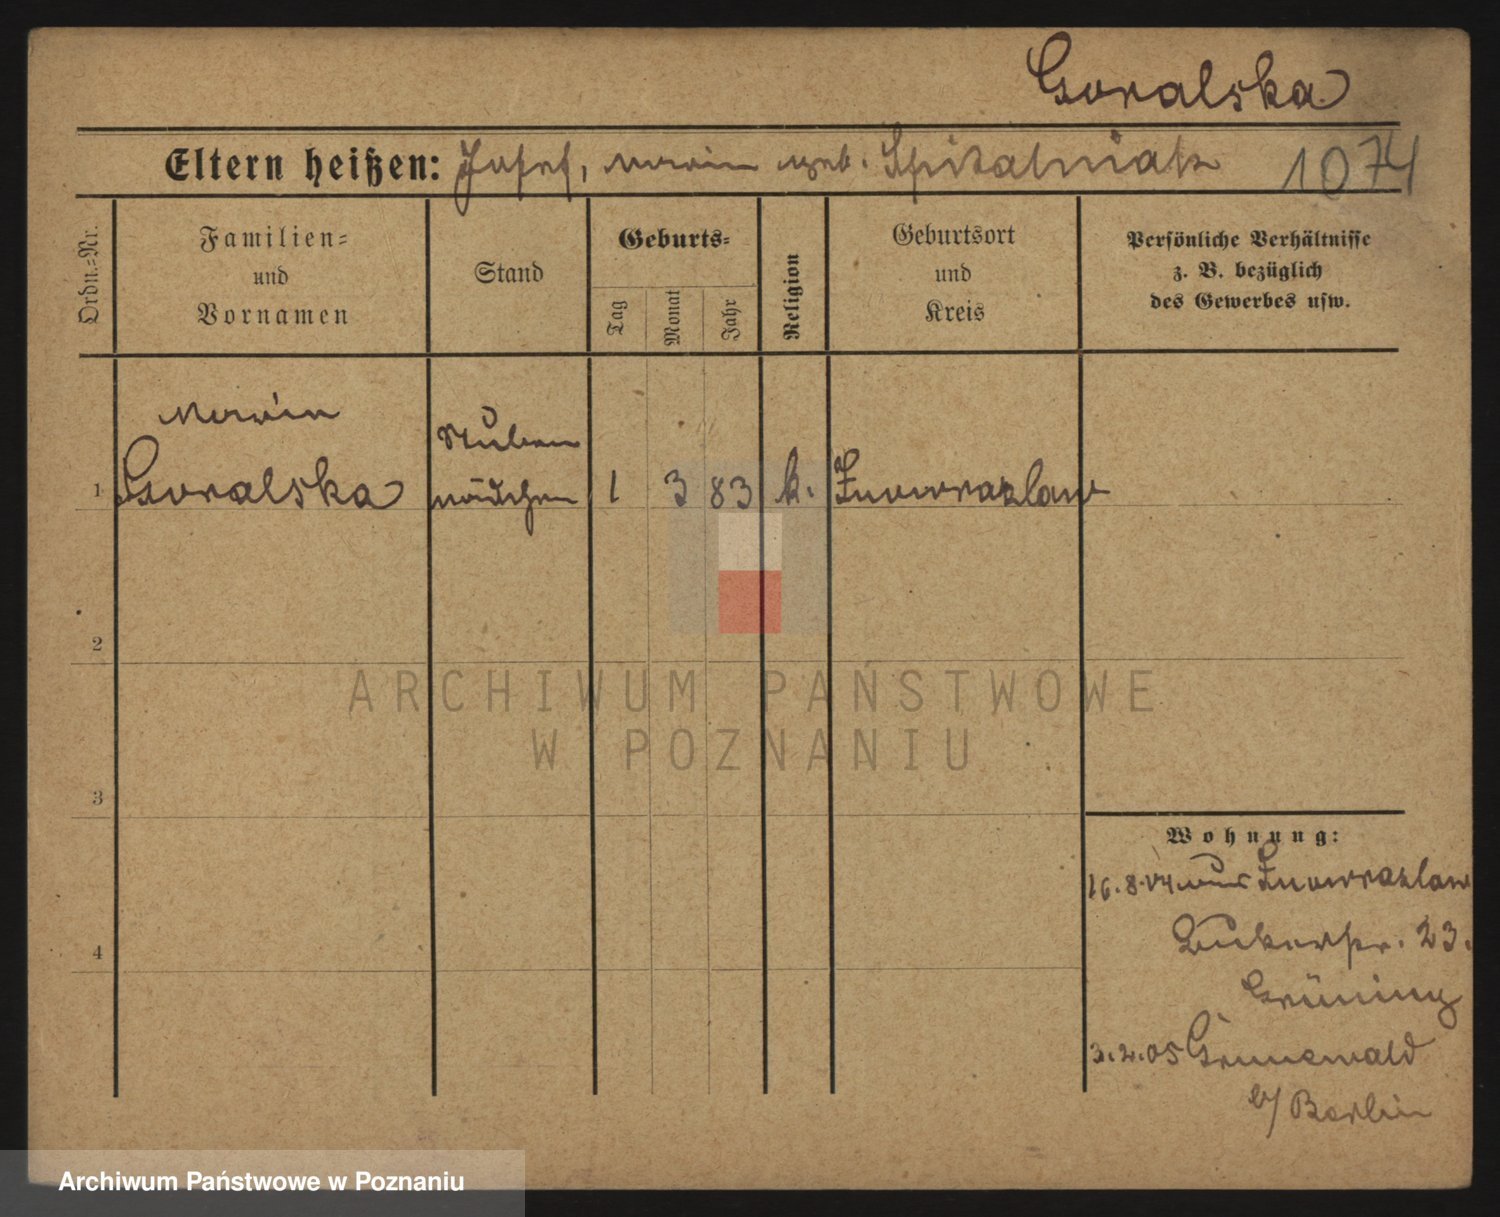 Goralska
Eltern heißen: Josef, Maria geb. Spitalniak 1074
Ordn.-Nr.
Familien-
und
Vornamen
Stand
Geburts-
Tag
Monat
Jahr
Religion
Geburtsort
und
Kreis
Persönliche Verhältnisse
z. B. bezüglich
des Gewerbes usw.
Maria Stuben
1 Goralska mädchen 1 3 83 k. Inowrazlaw
2
3
4
Wohnung:
16.8.04 aus Inowrazlaw
23.
Grüning
3.2.05 Grunewald
b/ Berlin
ARCHIWUM PAŃSTWOWE
W POZNANIU
Archiwum Państwowe w Poznaniu